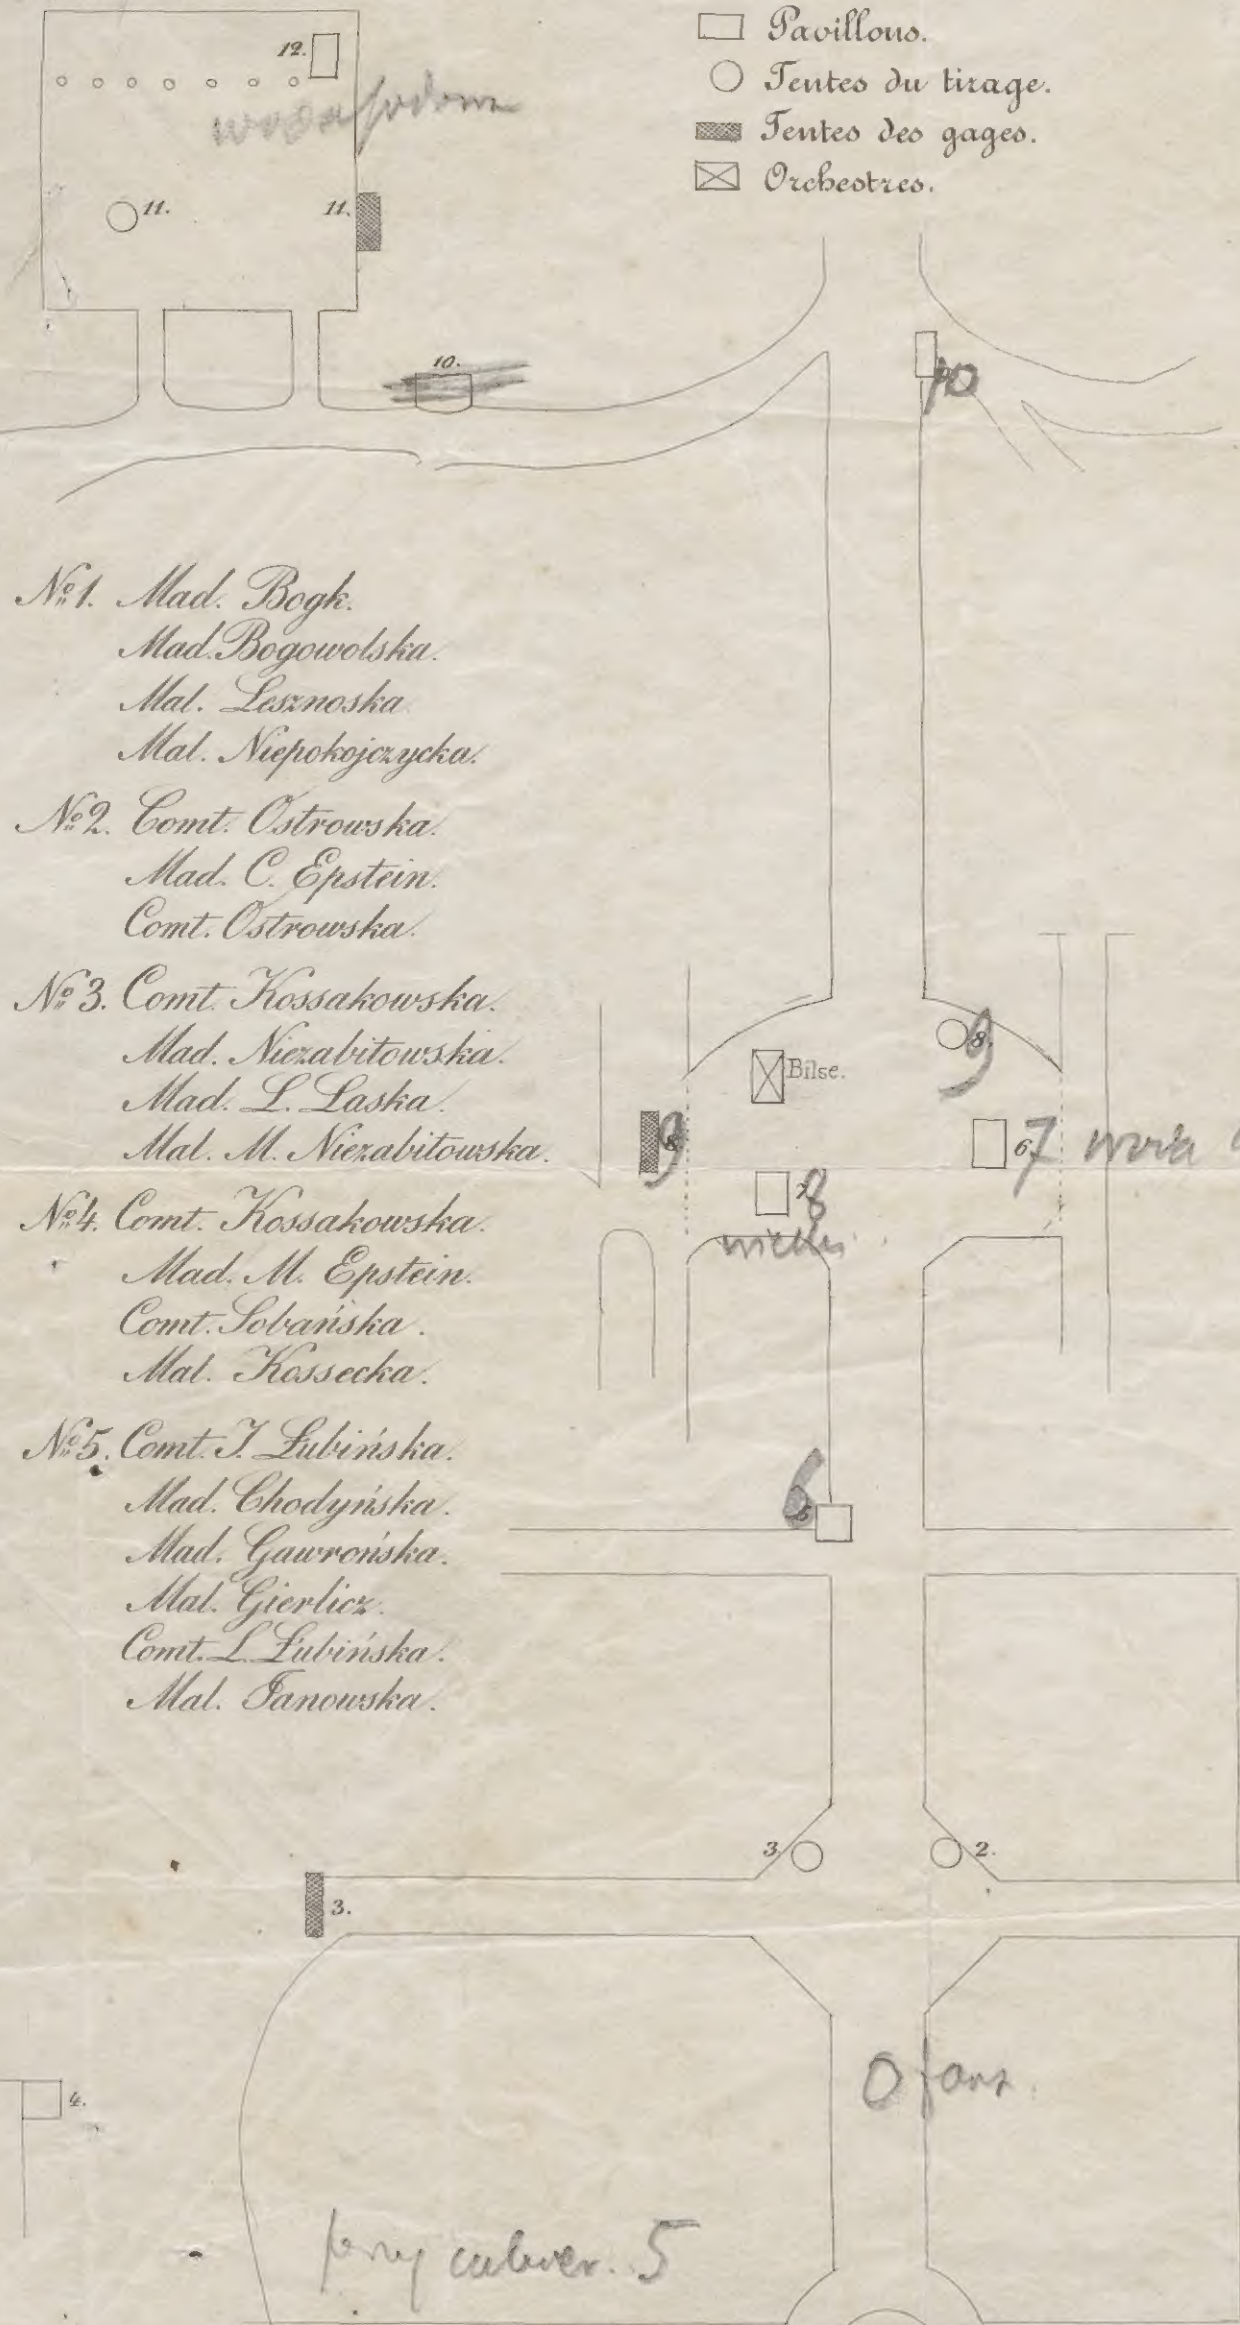 Pavillons.
Tentes du tirage.
Tentes des gages.
Orchestres.
12.
11.
11.
10.
10
No 1. Mad. Bogk.
Mad. Bogowolska.
Mal. Lesznoska
Mal. Niepokojczycka.
No 2. Comt. Ostrowska.
Mad. C. Epstein.
Comt. Ostrowska.
No 3. Comt. Kossakowska.
Mad. Niezabitowska.
Mad. L. Laska.
Mal. M. Niezabitowska.
No 4. Comt. Kossakowska.
Mad. M. Epstein.
Comt. Sobańska.
Mal. Kossecka.
No 5. Comt. J. Łubińska.
Mad. Chodyńska.
Mad. Gawrońska.
Mal. Gierlicz.
Comt. L. Łubińska.
Mal. Janowska.
8. 9
Bilse.
8. 9
6. 7
7. 8
5 6
3.
2.
3.
4.
5